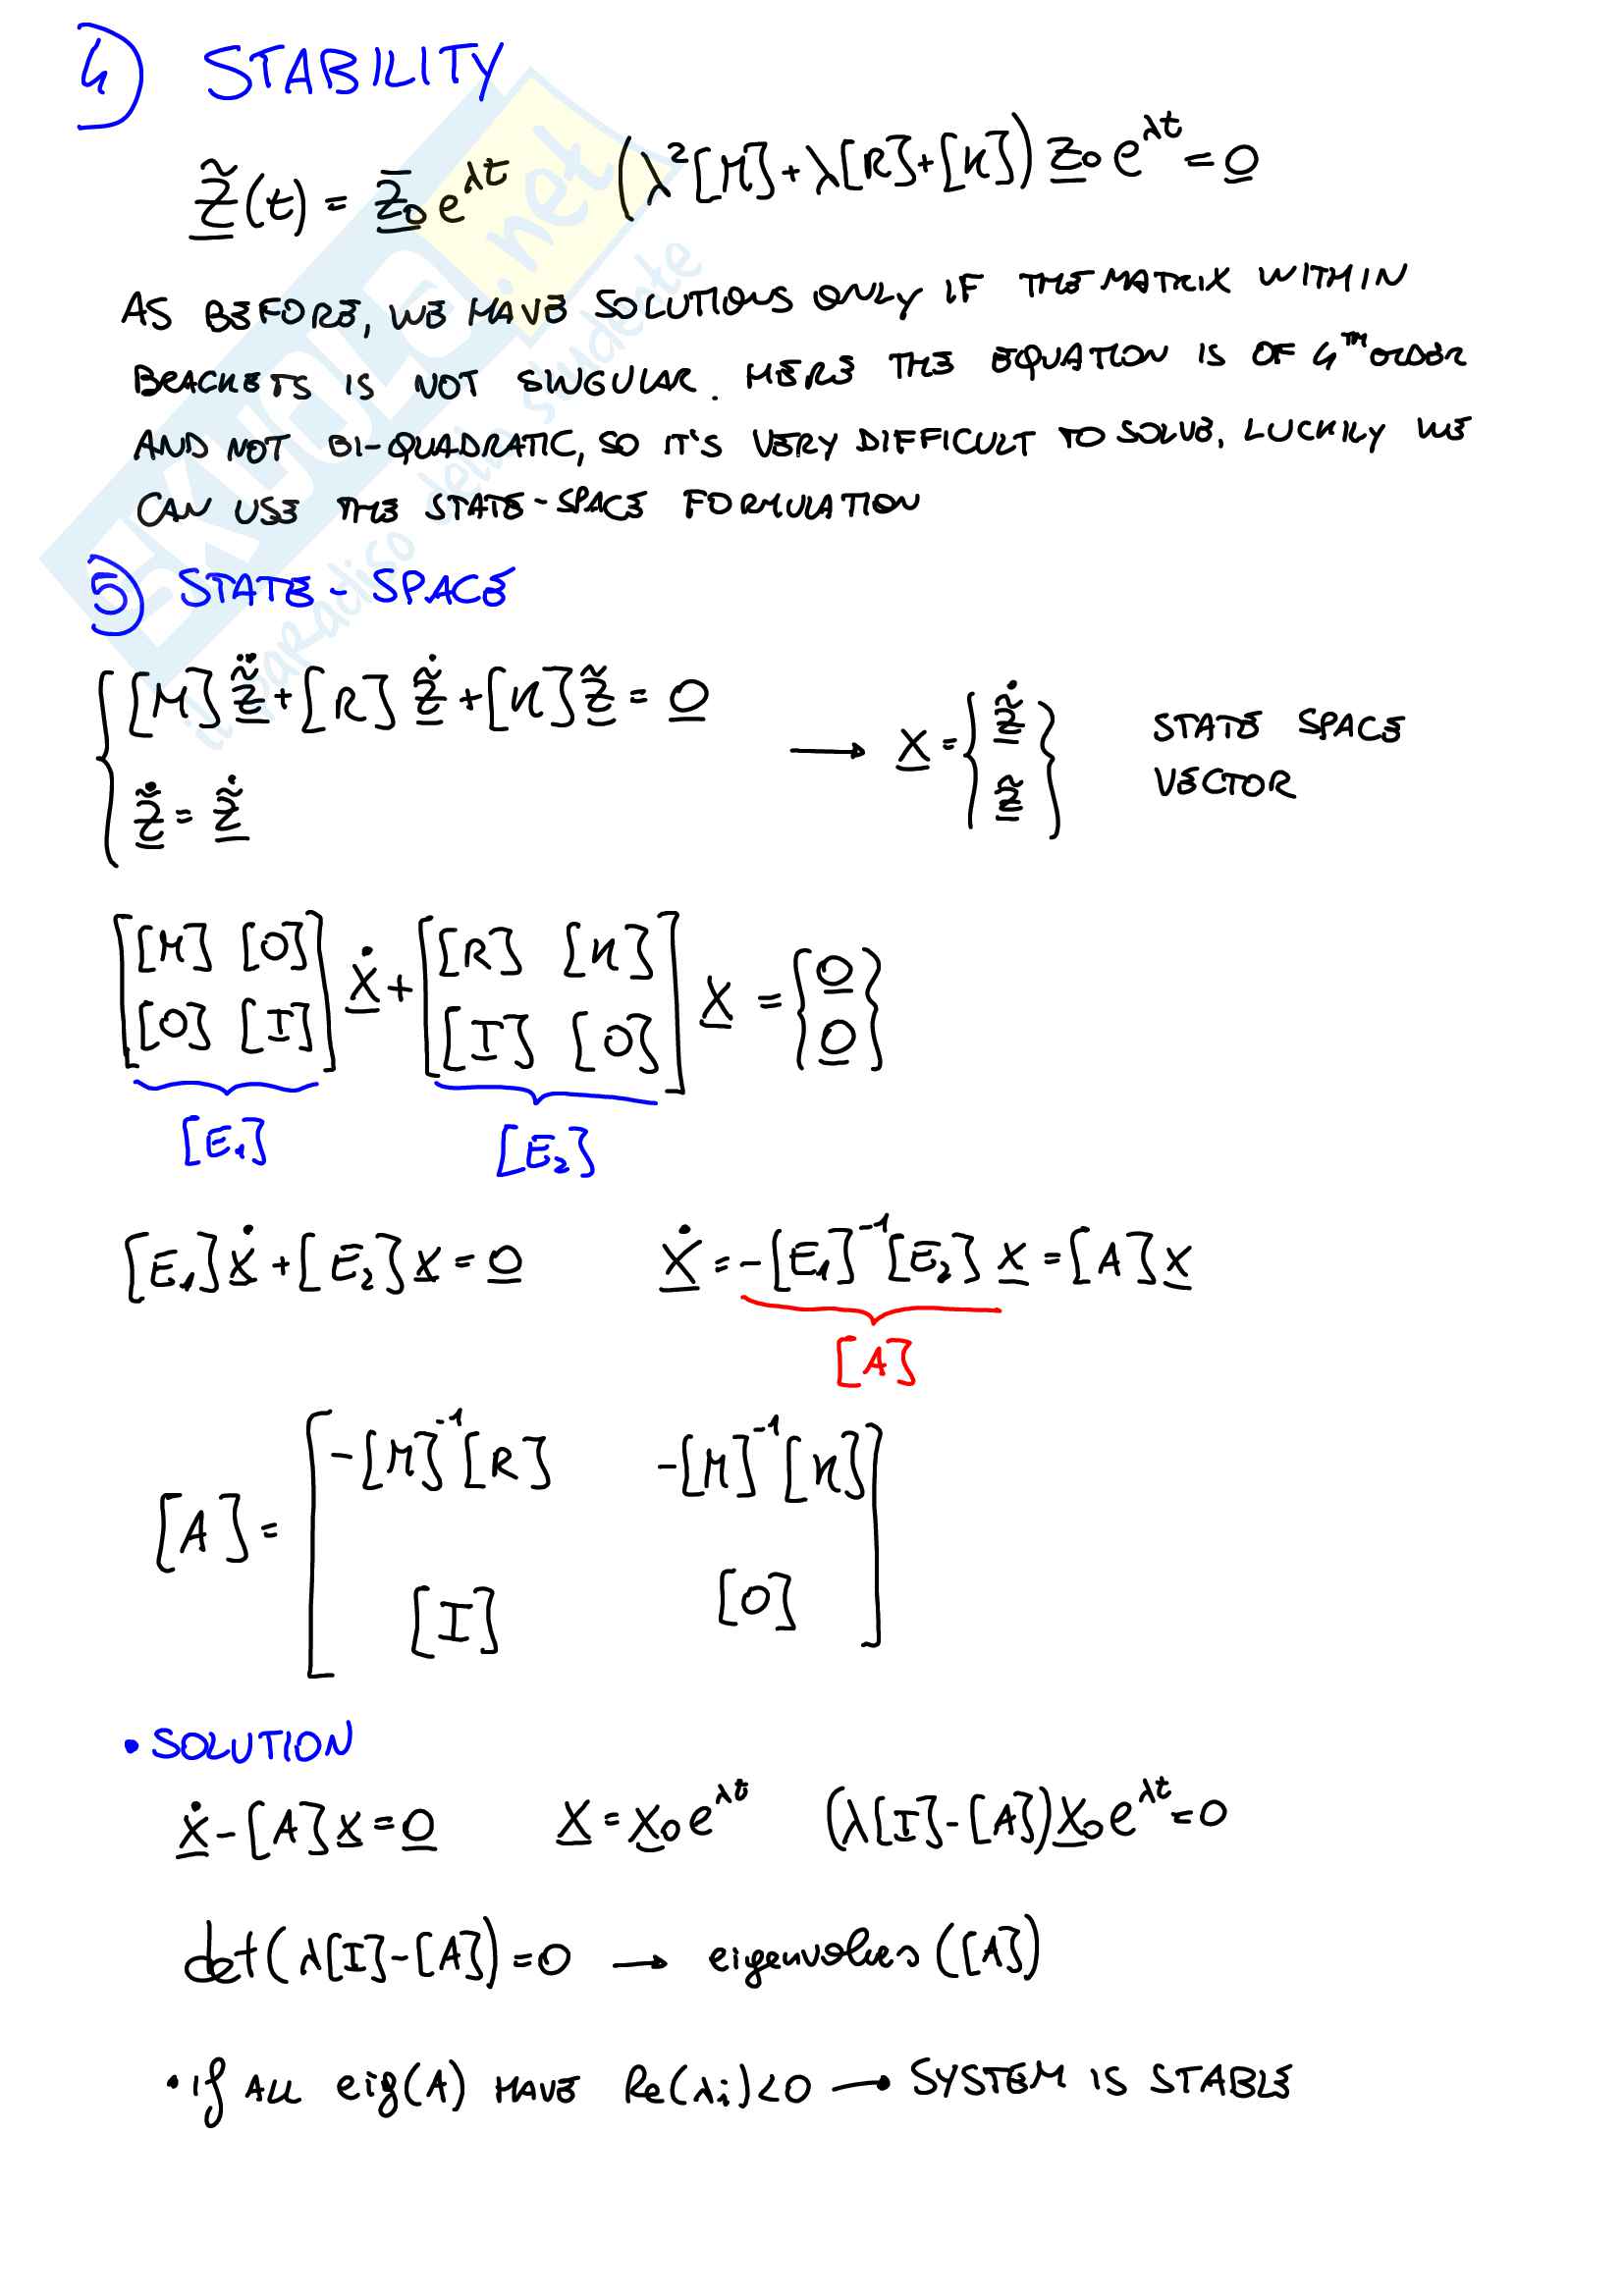 4) STABILITY
z̃(t) = z̄₀ e^λt (λ²[M]+λ[R]+[K]) z̄₀ e^λt = 0
AS BEFORE, WE HAVE SOLUTIONS ONLY IF THE MATRIX WITHIN
BRACKETS IS NOT SINGULAR. HERE THE EQUATION IS OF 4TH ORDER
AND NOT BI-QUADRATIC, SO IT'S VERY DIFFICULT TO SOLVE, LUCKILY WE
CAN USE THE STATE-SPACE FORMULATION
5) STATE-SPACE
[M] z̃̈ + [R] z̃̇ + [K] z̃ = 0
→ x = { z̃̇ z̃ } STATE SPACE
VECTOR
z̃̇ = z̃̇
[[M] [0]] ẋ + [[R] [K]] x = {0}
[[0] [I]] [[I] [0]] {0}
[E₁] [E₂]
[E₁] ẋ + [E₂] x = 0 ẋ = -[E₁]⁻¹[E₂] x = [A] x
[A]
[A] = -[M]⁻¹[R] -[M]⁻¹[K]
[I] [0]
• SOLUTION
ẋ - [A] x = 0 x = x₀ e^λt (λ[I]-[A]) x₀ e^λt = 0
det(λ[I]-[A]) = 0 → eigenvalues([A])
• If ALL eig(A) HAVE Re(λi)<0 → SYSTEM IS STABLE
SKUOLA.net
il paradiso dello studente